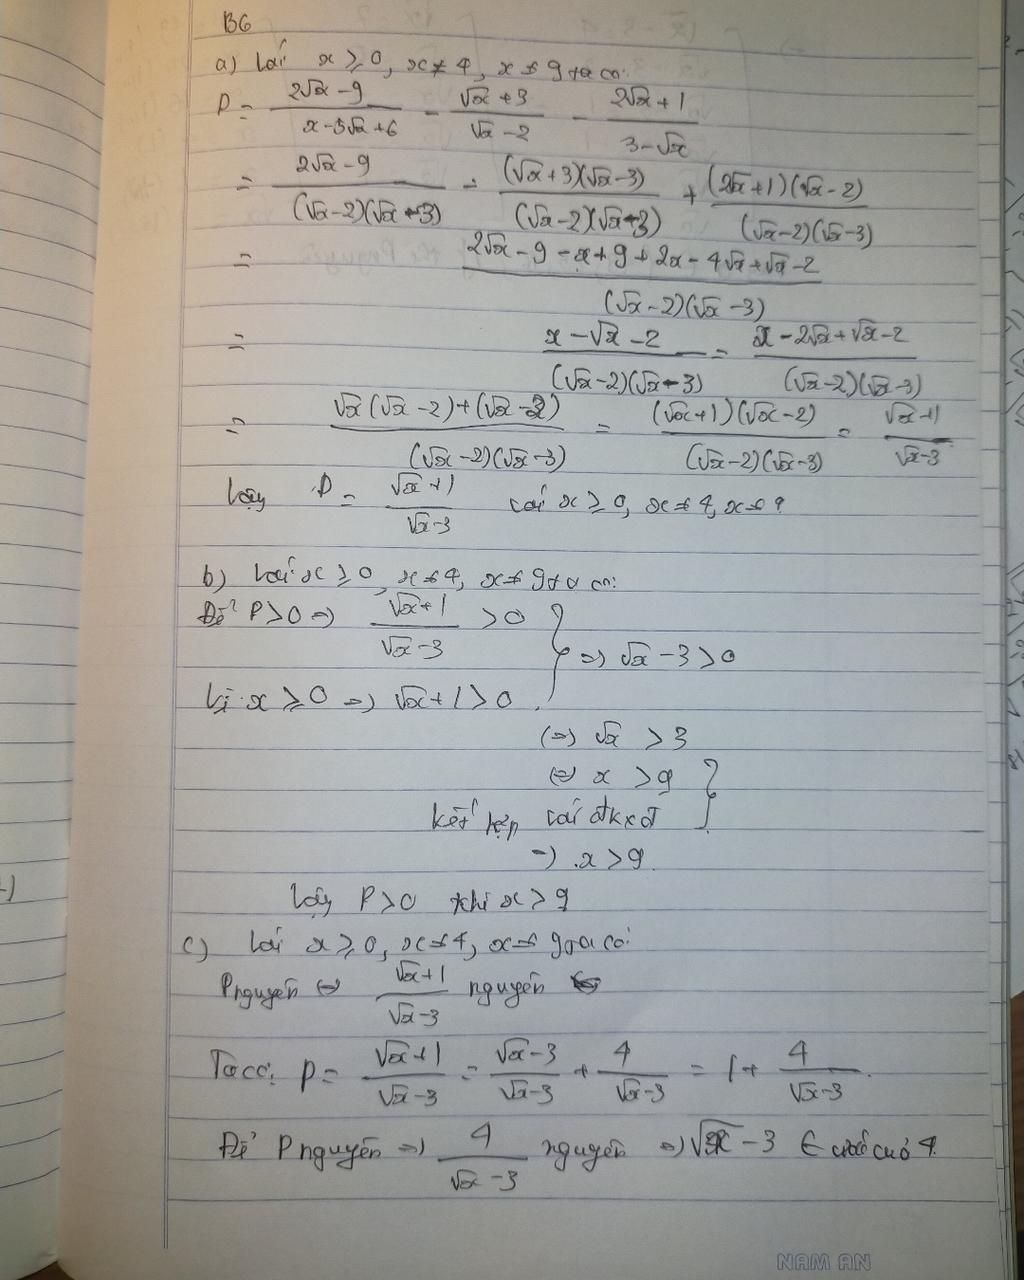 B6
a) Với x ≥ 0, x ≠ 4, x ≠ 9 ta có:
P = (2√x - 9)/(x - 5√x + 6) - (√x + 3)/(√x - 2) - (2√x + 1)/(3 - √x)
= (2√x - 9)/((√x - 2)(√x - 3)) - ((√x + 3)(√x - 3))/((√x - 2)(√x - 3)) + ((2√x + 1)(√x - 2))/((√x - 2)(√x - 3))
= (2√x - 9 - x + 9 + 2x - 4√x + √x - 2)/((√x - 2)(√x - 3))
= (x - √x - 2)/((√x - 2)(√x - 3)) = (x - 2√x + √x - 2)/((√x - 2)(√x - 3))
= (√x(√x - 2) + (√x - 2))/((√x - 2)(√x - 3)) = ((√x + 1)(√x - 2))/((√x - 2)(√x - 3)) = (√x + 1)/(√x - 3)
Vậy P = (√x + 1)/(√x - 3) với x ≥ 0, x ≠ 4, x ≠ 9
b) Với x ≥ 0, x ≠ 4, x ≠ 9 ta có:
Để P > 0 => (√x + 1)/(√x - 3) > 0
=> √x - 3 > 0
Vì x ≥ 0 => √x + 1 > 0
<=> √x > 3
<=> x > 9
kết hợp với đkxđ
=> x > 9
Vậy P > 0 khi x > 9
c) Với x ≥ 0, x ≠ 4, x ≠ 9 ta có:
P nguyên <=> (√x + 1)/(√x - 3) nguyên
Ta có: P = (√x + 1)/(√x - 3) = (√x - 3)/(√x - 3) + 4/(√x - 3) = 1 + 4/(√x - 3)
Để P nguyên => 4/(√x - 3) nguyên => √x - 3 ∈ ước của 4
NAM AN